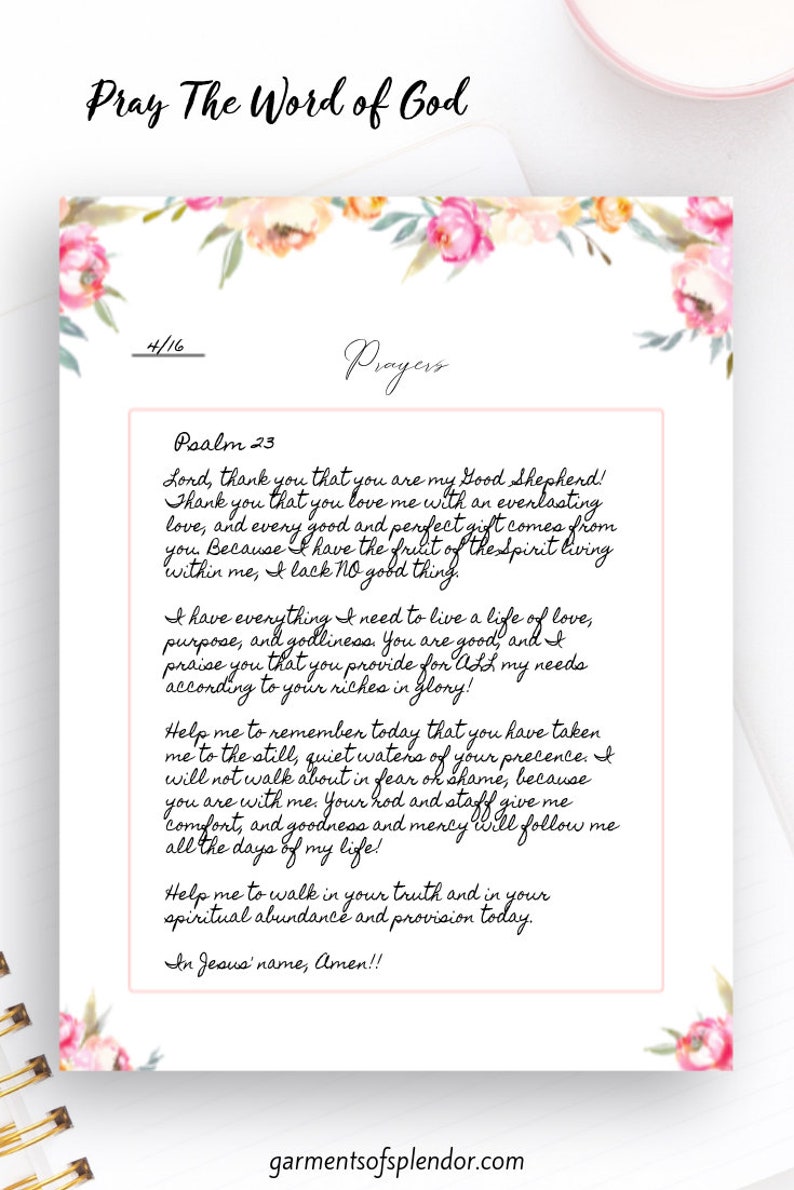 Pray The Word of God
4/16
Prayers
Psalm 23
Lord, thank you that you are my Good Shepherd!
Thank you that you love me with an everlasting
love, and every good and perfect gift comes from
you. Because I have the fruit of theSpirit living
within me, I lack NO good thing.
I have everything I need to live a life of love,
purpose, and godliness. You are good, and I
praise you that you provide for ALL my needs
according to your riches in glory!
Help me to remember today that you have taken
me to the still, quiet waters of your precence. I
will not walk about in fear or shame, because
you are with me. Your rod and staff give me
comfort, and goodness and mercy will follow me
all the days of my life!
Help me to walk in your truth and in your
spiritual abundance and provision today.
In Jesus' name, Amen!!
garmentsofsplendor.com